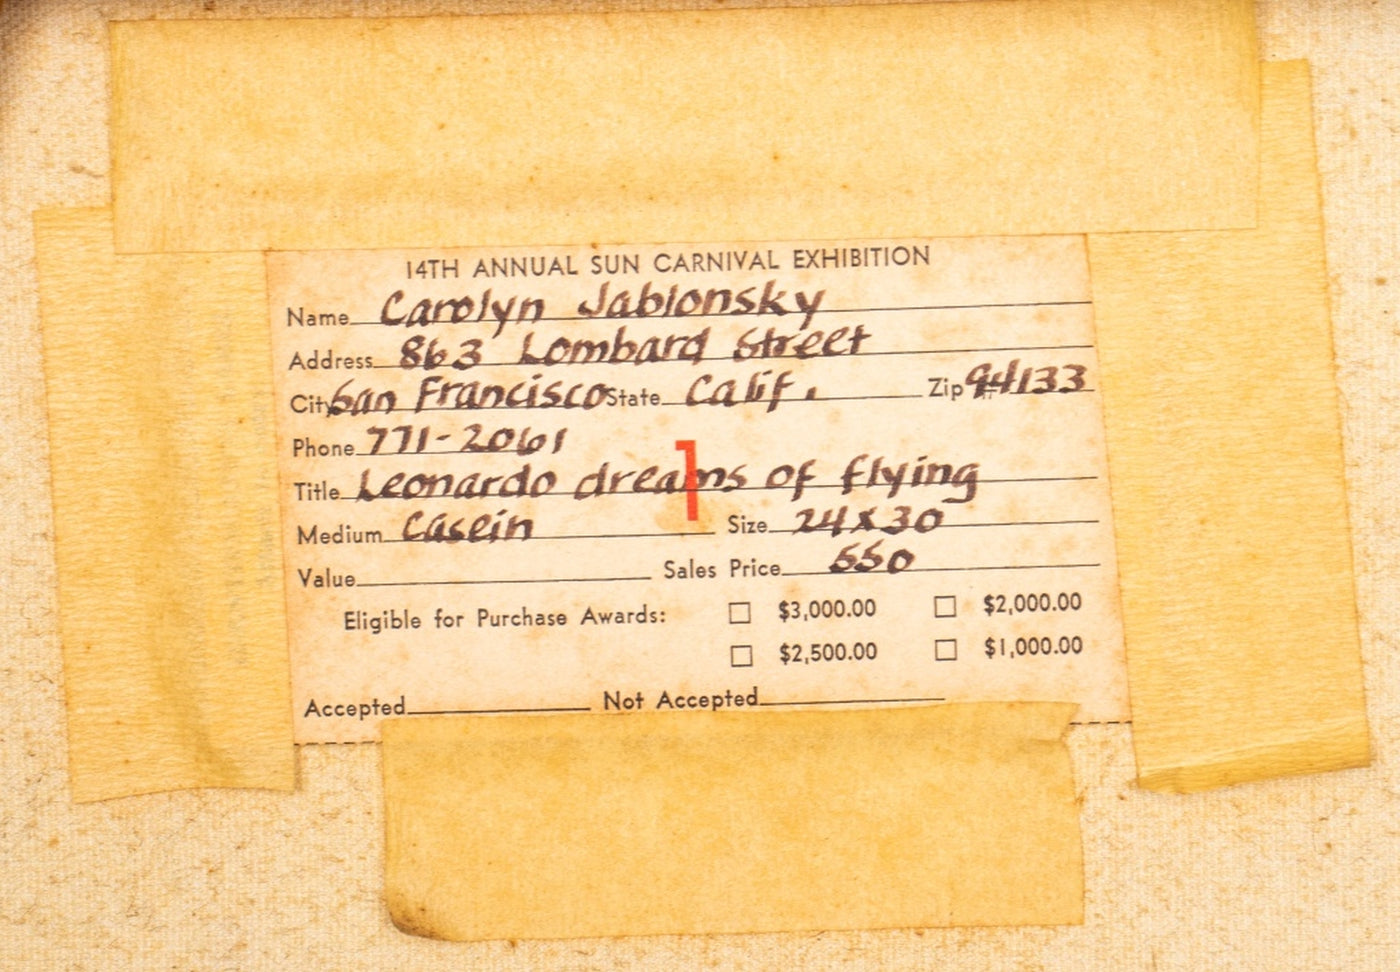 14TH ANNUAL SUN CARNIVAL EXHIBITION
Name Carolyn Jablonsky
Address 863 Lombard Street
City San Francisco State Calif. Zip 94133
Phone 771-2061
1
Title Leonardo dreams of flying
Medium Casein Size 24 x 30
Value Sales Price 550
Eligible for Purchase Awards: ☐ $3,000.00 ☐ $2,000.00
☐ $2,500.00 ☐ $1,000.00
Accepted Not Accepted